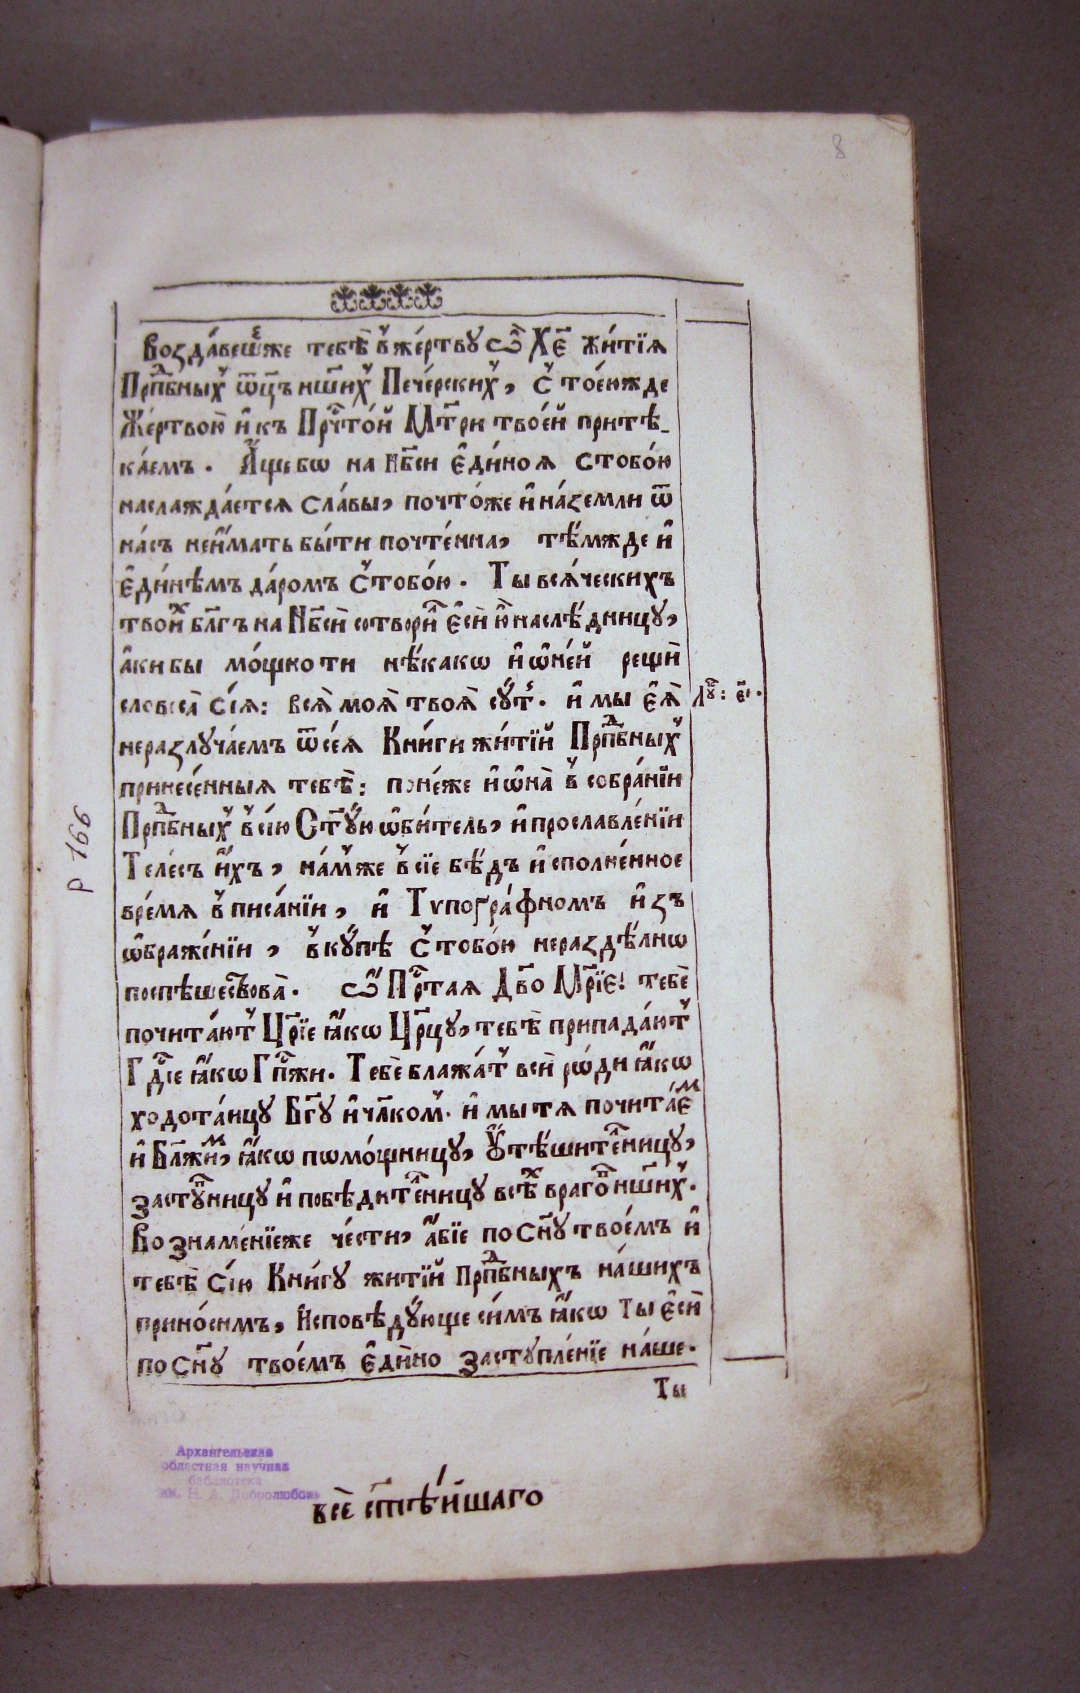 8
Воздавешеже тебѣ в жертву ѽ Хе҃ житїя
Прпⷣбныхъ ѿцъ нш҃ихъ Печерскихъ, с тоеюжде
Жертвою и къ Прчⷭтой Мт҃ри твоей притѣ-
каемъ. Аще бѡ на Нб҃си единоя стобою
наслаждается славы, почтоже и на земли ѿ
насъ неимать быти почтенна, тѣмжде и
единѣмъ даромъ стобою. Ты всяческихъ
твоиⷯ блг҃ъ на Нб҃си сотвориⷧ еси ю наслѣдницу,
аки бы мощно ти нѣкакѡ и ѡ ней рещи
словеса сїя: вся моя твоя суⷮ. и мы ея
неразлучаемъ ѿ сея Книги житїй Прпⷣбныхъ
принесенныя тебѣ: понеже и ѡна в собранїи
Прпⷣбныхъ в сїю Ст҃ую ѡбитель, и прославленїи
Телесъ ихъ, намже в сїе бѣдъ исполненное
время в писанїи, и Тѵпографномъ изъ
ѡбраженїи, вкупѣ с тобою нераздѣлнѡ
поспѣшествова. ѽ Прⷭтая Дв҃о Мр҃їе! тебе
почитаютъ Цр҃їе якѡ Цр҃цу, тебѣ припадаютъ
Гдⷭїе якѡ Гпⷭжи. Тебе блажатъ вси рѡди якѡ
ходотаицу Бг҃у и чл҃комъ. и мы тя почитаеⷨ
и Блажиⷨ, якѡ пѡмощницу, Утѣшитⷧ҇ницу,
заступⷩ҇ицу и побѣдитⷧ҇ницу всѣⷯ врагоⷡ нш҃ихъ.
Во знаменїеже чести, абїе по Сн҃у твоемъ и
тебѣ сїю Книгу житїй прпⷣбныхъ нашихъ
приносимъ, Исповѣдующе симъ якѡ ты еси
по Сн҃у твоемъ едино заступленїе наше.
Ты
Р 166
Архангельская
областная научная
библиотека
им. Н. А. Добролюбова
все ст҃ѣйшаго